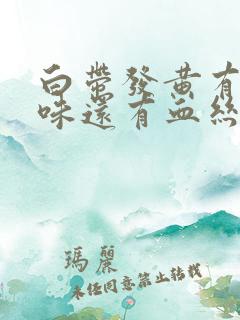 白带发黄有
味还有血丝
玛丽
未经同意禁止转载